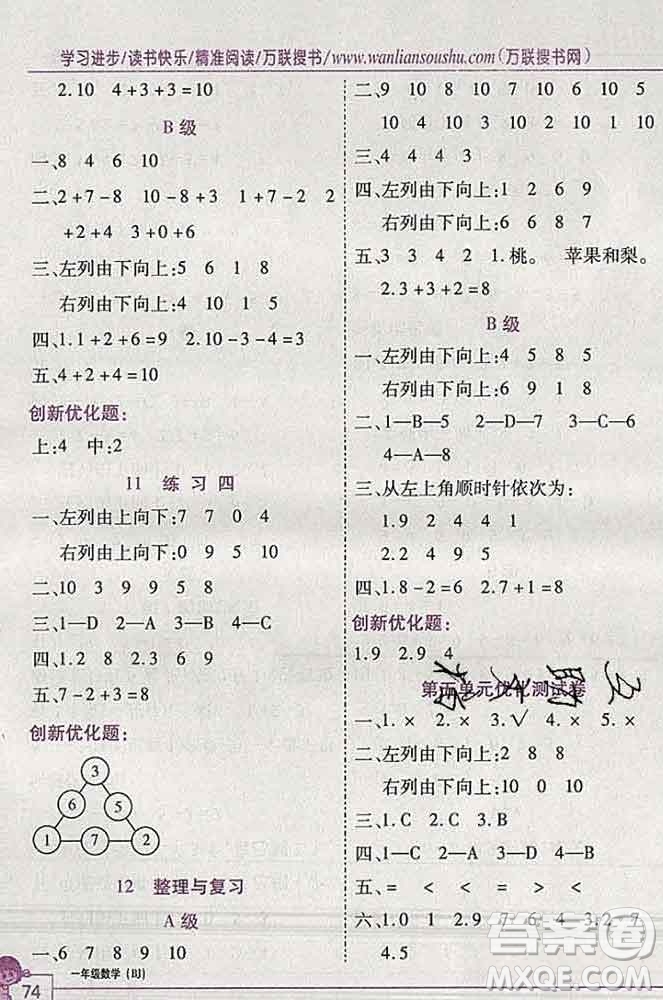 学习进步/读书快乐/精准阅读/万联搜书/www.wanliansoushu.com(万联搜书网)
2.10 4+3+3=10
B 级
一、8 4 6 10
二、2+7-8 10-8+3 1+7-2 2
+2+4 7-5+2
三、左列由下向上:5 6 1 8
右列由下向上:4 10 1 5
四、1.1+2+6=9 2.10-4-3=3
五、4+2+4=10
创新优化题:
上:4 中:2
11 练 习 四
一、左列由上向下:7 7 0 4
右列由上向下:9 5 9 9
二、10 3 9 9 5 8
三、1—D 2—A 3—C 4—D
四、1.2 9 4 8 2.8
五、7-2+3=8
创新优化题:
3
6 5
1 7 2
12 整理与复习
A 级
一、6 7 8 9 10
二、9 10 8 10 7 10 6 10 5
10 4 10 3 10 2 10 1 10
三、4 4 4 3
四、左列由下向上:1 2 6 9
右列由下向上:6 6 8 7
五、3 3 4 2 1.桃。 苹果和梨。
2.3+3+2=8
B 级
一、左列由下向上:4 5 8 5
右列由下向上:7 9 8 4
二、1—B—5 2—D—7 3—C—6
4—A—8
三、从左上角顺时针依次为:
1.9 2 4 4 1
2.2 4 9 5
四、1.8-2=6 2.7+1=8
创新优化题:
1.9 2.9 4
第五单元优化测试卷
一、1.× 2.× 3.√ 4.× 5.×
二、左列由下向上:2 8 8
右列由下向上:10 0 0
三、1.C 2.C 3.B
四、1—C 2—D 3—B 4—A
五、= < < = > <
六、1.0 1 2.9 7 6 4 3.2 7
4.5
74
一年级数学 (BJ)
答案圈
MXQE.COM